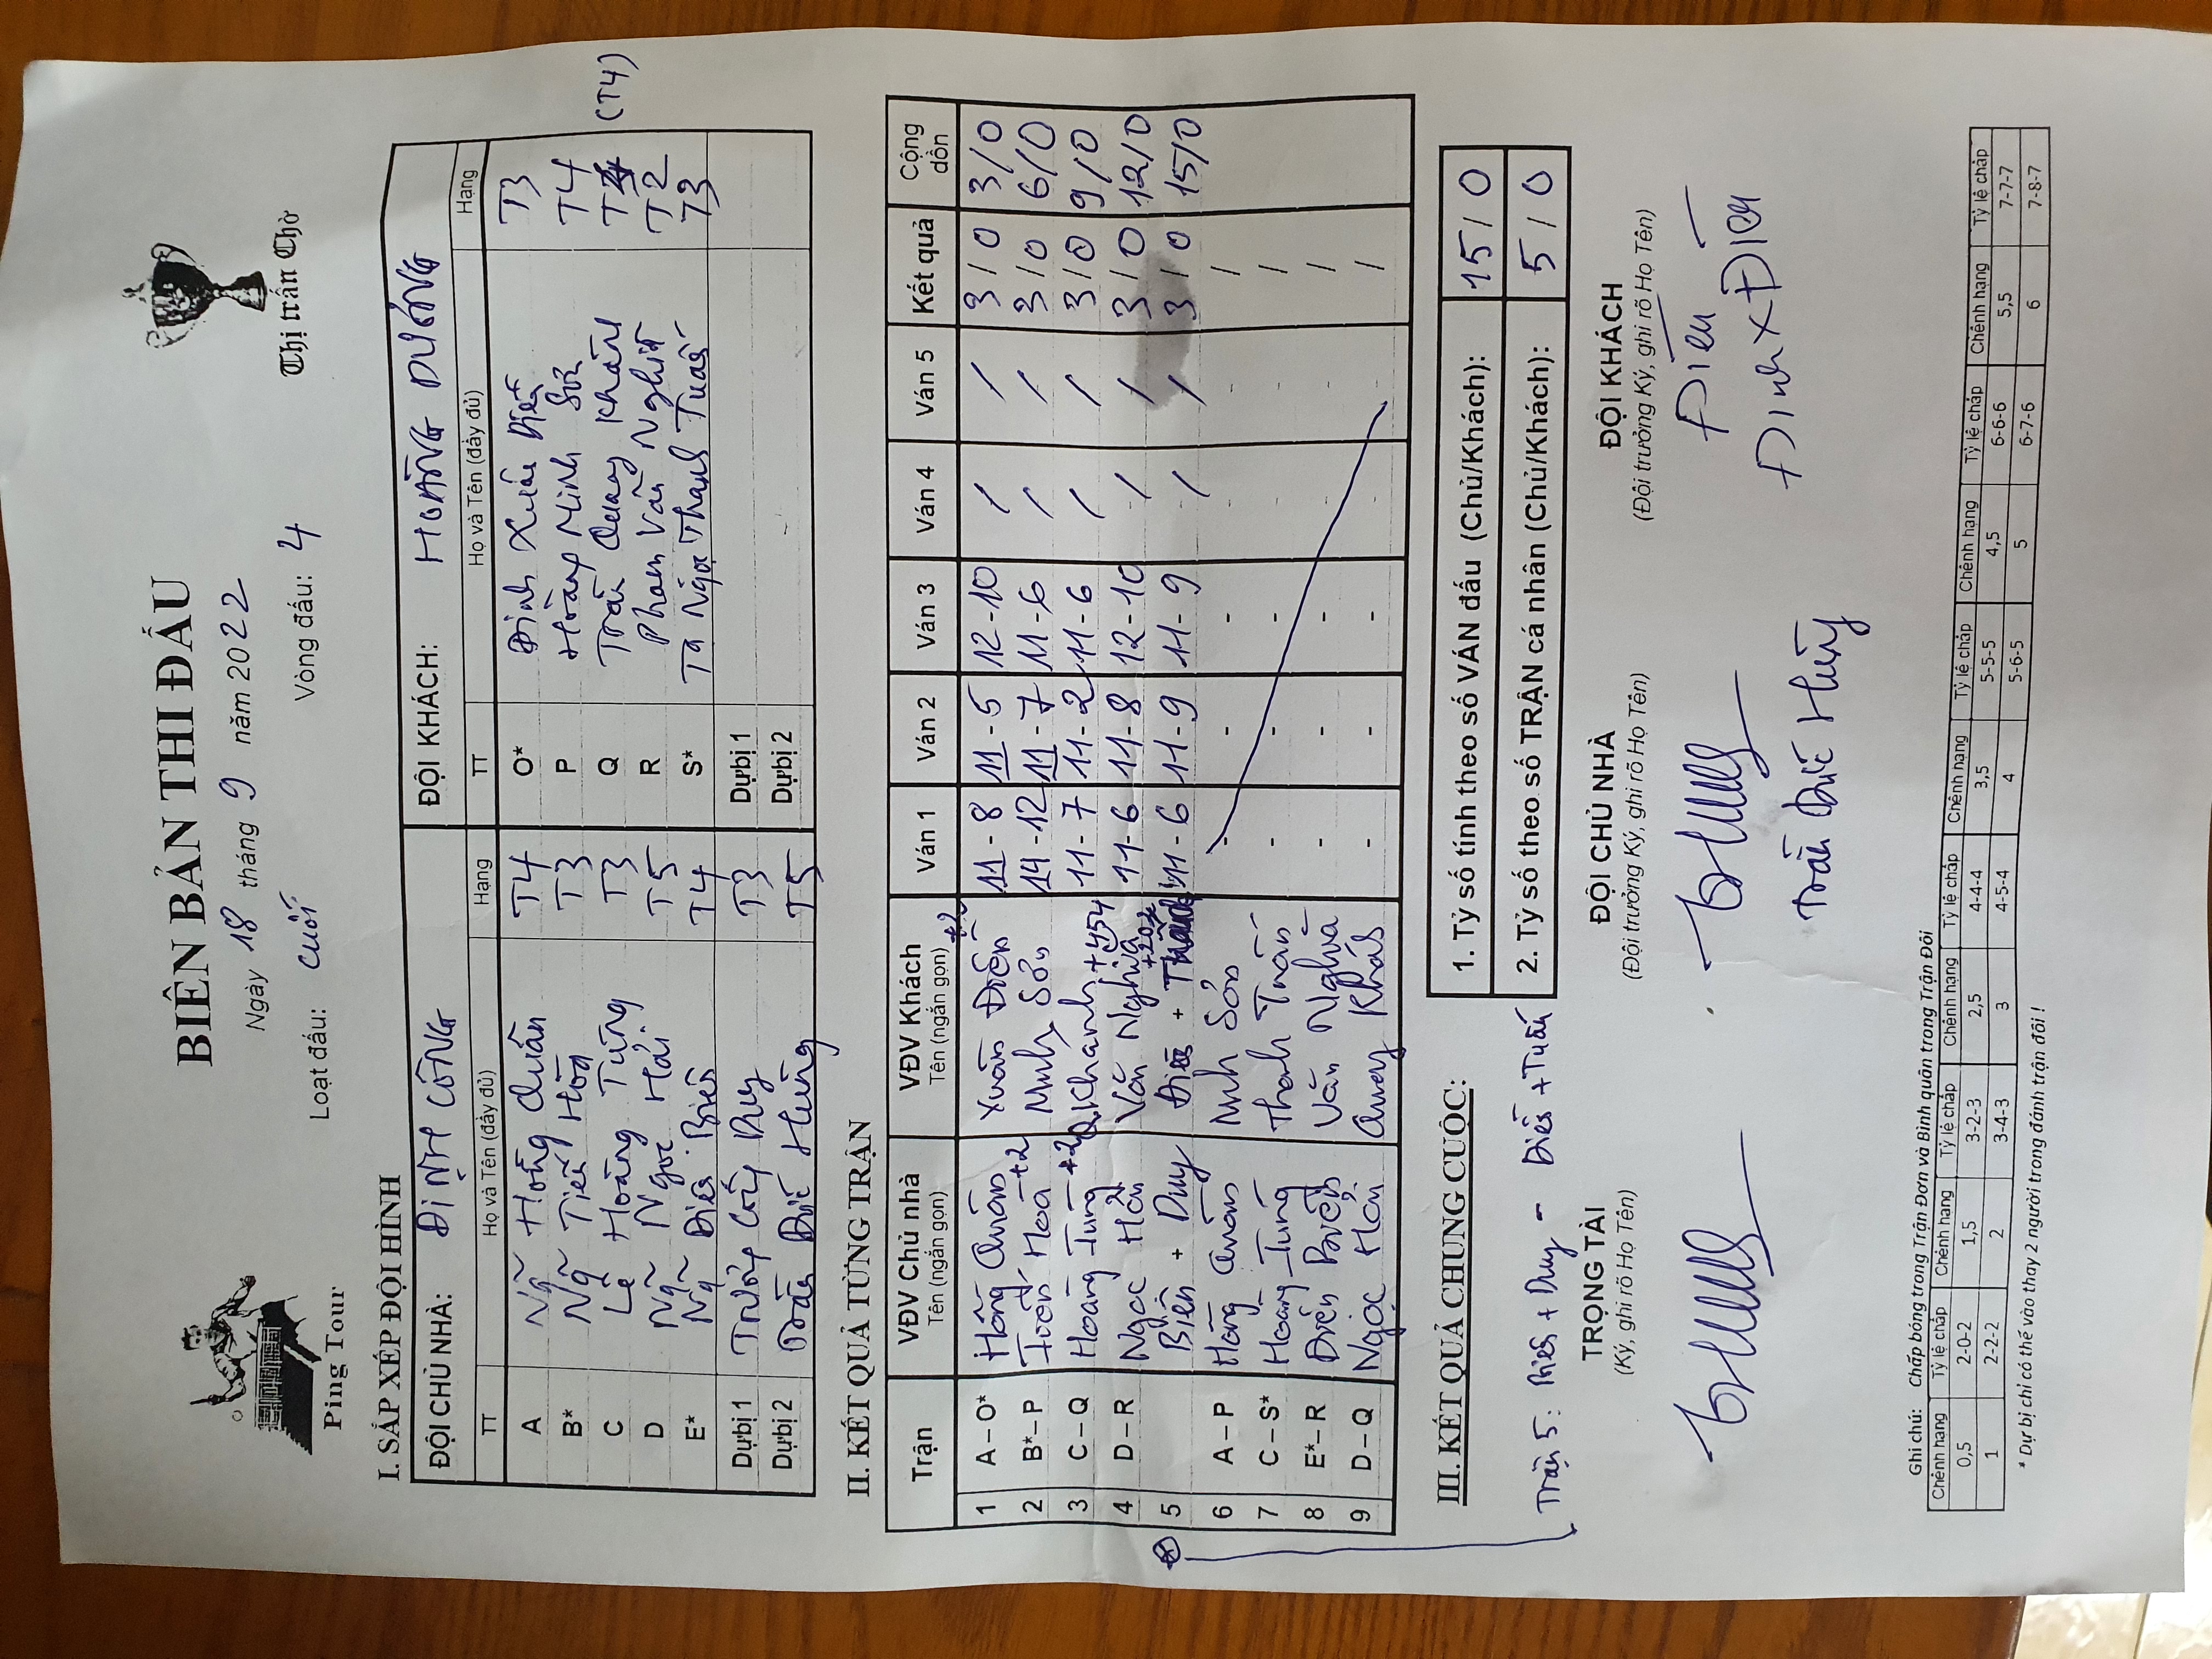 BIÊN BẢN THI ĐẤU
Ngày 18 tháng 9 năm 2022
Loạt đấu: cuối Vòng đấu: 4
Ping Tour
Thị trấn Chờ
I. SẮP XẾP ĐỘI HÌNH
ĐỘI CHỦ NHÀ: ĐỊNH CÔNG ĐỘI KHÁCH: HOÀNG DƯƠNG
TT Họ và Tên (đầy đủ) Hạng TT Họ và Tên (đầy đủ) Hạng
A Ng~ Hồng Quân T4 O* Đinh Xuân Diễn T3
B* Ng~ Tiến Hòa T3 P Hoàng Minh Sơn T4
C Lê Hoàng Tùng T3 Q Trần Quang Khánh (T4)
D Ng~ Ngọc Hải T5 R Phạm Văn Nghĩa T2
E* Ng~ Điện Biên T4 S* Tạ Ngọc Thanh Tuấn T3
Dự bị 1 Trương Công Duy T3 Dự bị 1
Dự bị 2 Trần Đức Hùng T5 Dự bị 2
II. KẾT QUẢ TỪNG TRẬN
Trận VĐV Chủ nhà VĐV Khách Ván 1 Ván 2 Ván 3 Ván 4 Ván 5 Kết quả Cộng dồn
Tên (ngắn gọn) Tên (ngắn gọn)
1 A – O* Hồng Quân Xuân Diễn +2 11 - 8 11 - 5 12 - 10 / / 3 / 0 3/0
2 B* – P Hoà +2 Minh Sơn 14 - 12 11 - 7 11 - 6 / / 3 / 0 6/0
3 C – Q Hoàng Tùng +2 Q.Khanh 11 - 7 11 - 2 11 - 6 / / 3 / 0 9/0
4 D – R Ngọc Hải Văn Nghĩa +454 11 - 6 11 - 8 12 - 10 / / 3 / 0 12/0
5 Biên + Duy 11 - 6 11 - 9 11 - 9 / / 3 / 0 15/0
6 A – P Hồng Quân Minh Sơn - - - - - /
7 C – S* Hoàng Tùng Thanh Tuấn - - - - - /
8 E* – R Điện Biên Văn Nghĩa - - - - - /
9 D – Q Ngọc Hải Quang Khánh - - - - - /
III. KẾT QUẢ CHUNG CUỘC:
1. Tỷ số tính theo số VÁN đấu (Chủ/Khách): 15 / 0
2. Tỷ số theo số TRẬN cá nhân (Chủ/Khách): 5 / 0
Trận 5: Biên + Duy - Diễn + Tuấn
TRỌNG TÀI ĐỘI CHỦ NHÀ ĐỘI KHÁCH
(Ký, ghi rõ Họ Tên) (Đội trưởng Ký, ghi rõ Họ Tên) (Đội trưởng Ký, ghi rõ Họ Tên)
Trần Đức Hùng
Ghi chú: Chấp bóng trong Trận Đơn và Bình quân trong Trận Đôi
Chênh hạng Tỷ lệ chấp Chênh hạng Tỷ lệ chấp Chênh hạng Tỷ lệ chấp Chênh hạng Tỷ lệ chấp Chênh hạng Tỷ lệ chấp Chênh hạng Tỷ lệ chấp
0,5 2-0-2 1,5 3-2-3 2,5 4-4-4 3,5 5-5-5 4,5 6-6-6 5,5 7-7-7
1 2-2-2 2 3-4-3 3 4-5-4 4 5-6-5 5 6-7-6 6 7-8-7
* Dự bị chỉ có thể vào thay 2 người trong đánh trận đôi !